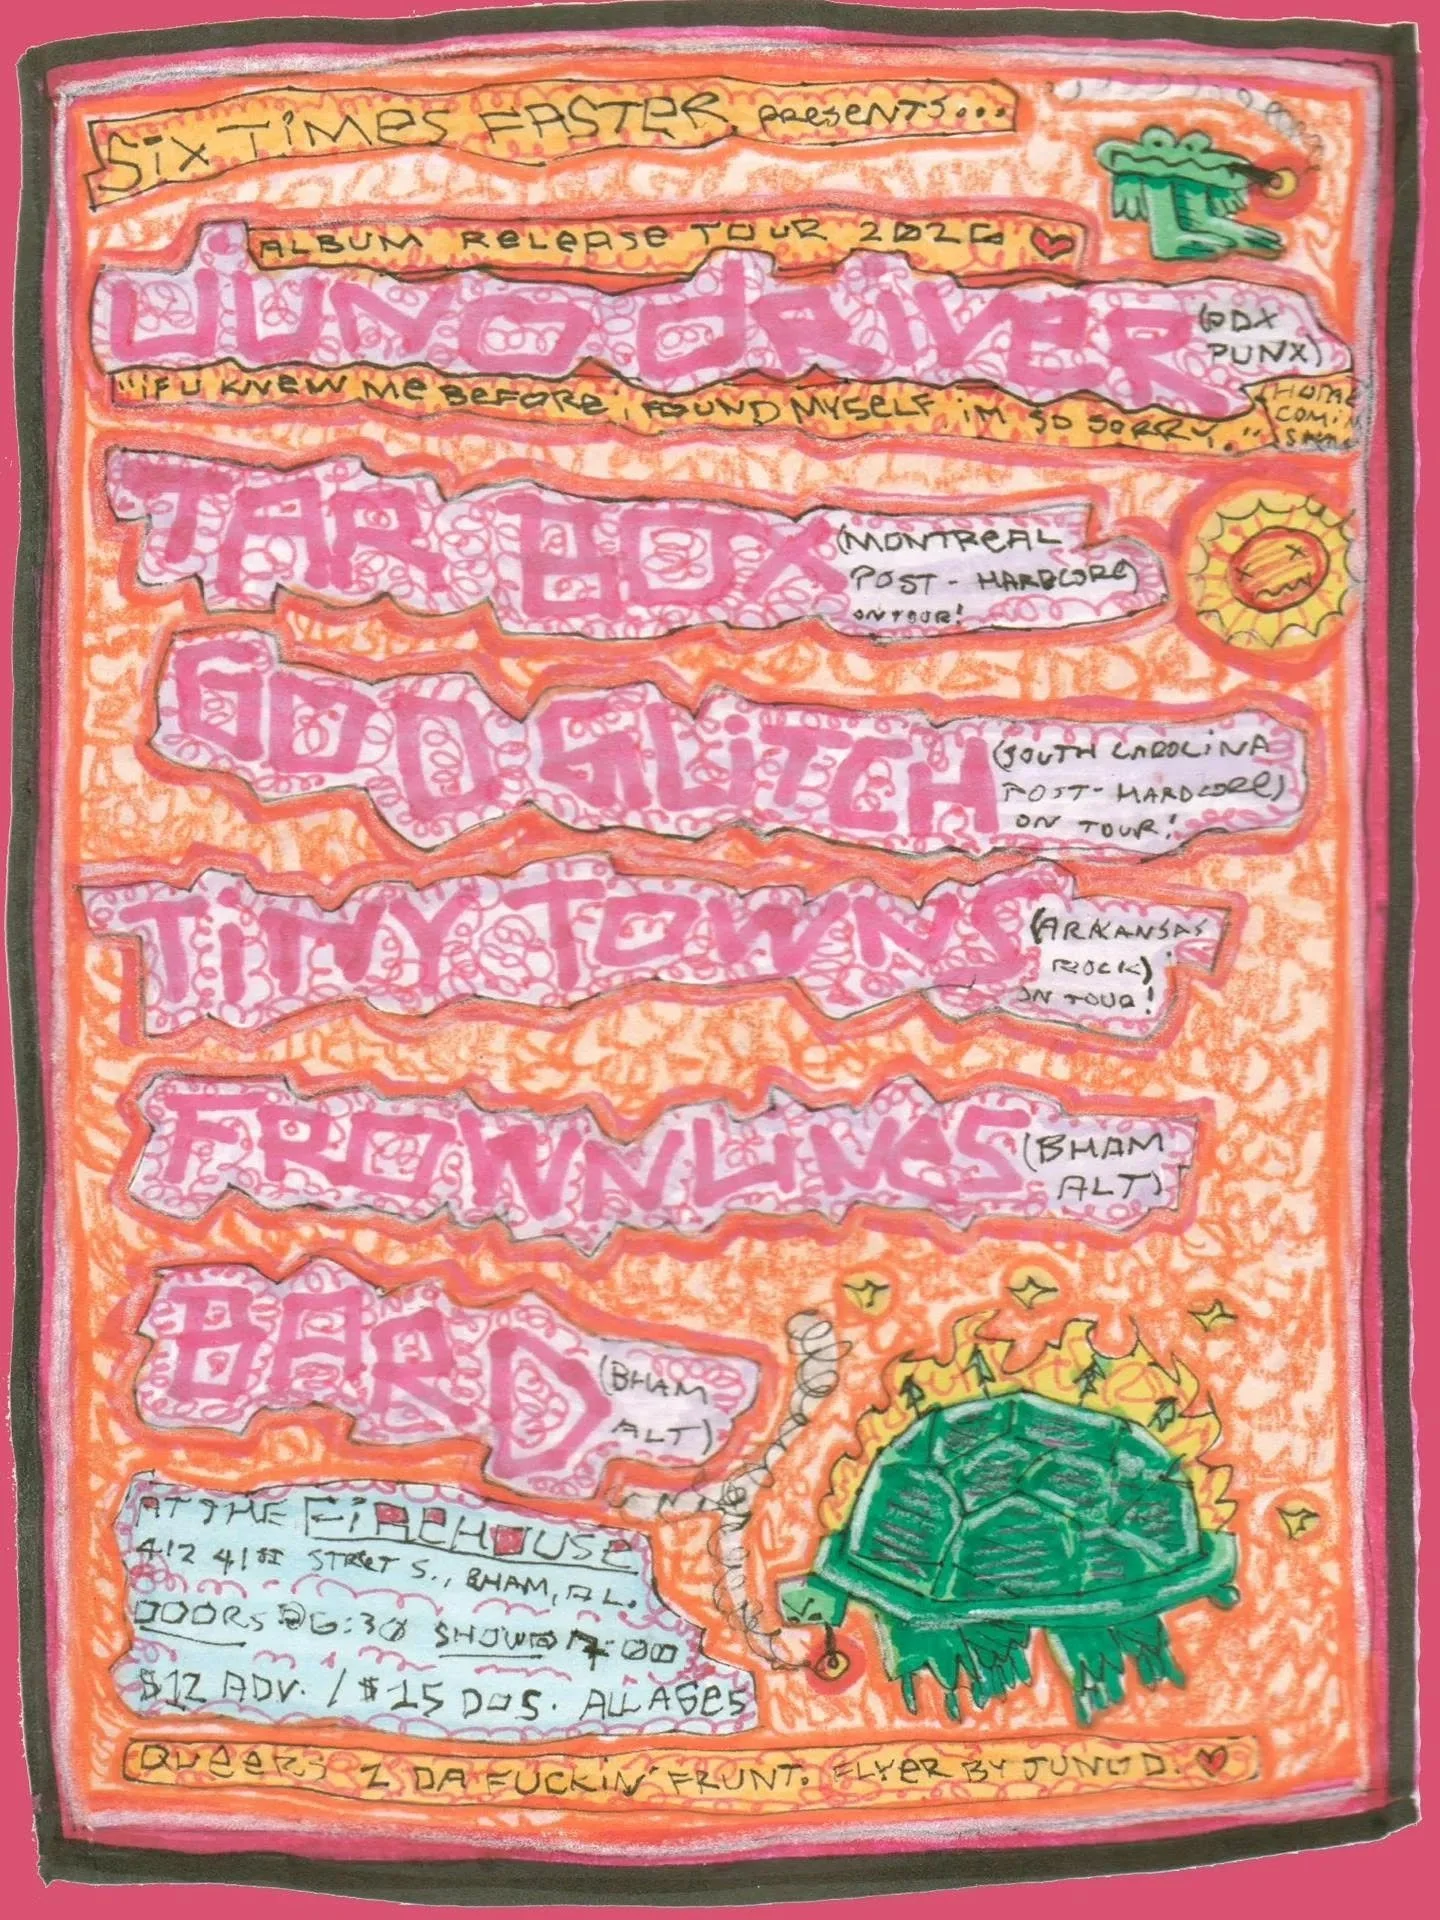 SiX TiMES FASTER PRESENTS...
ALBUM RELEASE TOUR 2026
JUNO DRiVER (PDX PUNX)
"iF U KNEW ME BEFORE i FOUND MYSELF iM SO SORRY."
(HOME
COMiN
TAR BOX
(MONTREAL
POST - HARDCORE)
ON TOUR!
GOD GLiTCH
(SOUTH CAROLiNA
POST- HARDCORE)
ON TOUR!
TiNY TOWNS
(ARKANSAS
ROCK)
ON TOUR!
FROWNLiNES
(BHAM
ALT)
BARD
(BHAM
ALT)
AT THE FiREHOUSE
412 41ST STREET S., BHAM, AL.
DOORS @6:30 SHOW@7:00
$12 ADV. / $15 DOS. ALL AGES
QUEERS 2 DA FUCKiN' FRUNT. FLYER BY JUNO D.